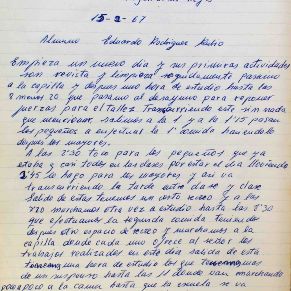 15-2-67
Alumno Eduardo Rodríguez
Empieza un nuevo día y sus primeras actividades
son revista y limpieza seguidamente pasamos
a la capilla y después una hora de estudio hasta las
8 menos 20 que pasamos al desayuno para reponer
fuerzas para el taller. Transcurriendo este sin nada
que mencionar, salimos a la 1 y a la 1'15 pasan
los pequeños a efectuar la 1ª comida haciendolo
después los mayores.
A las 2'30 toca para los pequeños que ya
y con todos en las clases por estar el día
2'45 lo hago para los mayores, y así va
transcurriendo la tarde entre clase y clase
Salido de estas tenemos un corto recreo y a las
marchamos otra vez a estudio hasta las 8'30
que efectuamos la segunda comida teniendo
después otro espacio de recreo y marchamos a la
capilla donde cada uno ofrece al señor los
trabajos realizados en este día salida de esta
una hora de estudio los que
de un reposo hasta las 11 donde van marchando
poco a poco a la cama hasta que la escuela se va